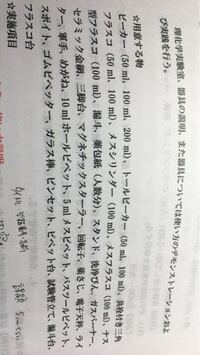 理化学実験室、器具の説明、また器具については使い方のデモンストレーションおよ
び実践を行う。
☆用意する物
ビーカー (50 ml, 100 ml, 200 ml)、トールビーカー (50 ml, 100 ml)、共栓付き三角
フラスコ (50 ml, 100 ml)、メスシリンダー (100 ml)、メスフラスコ (100 ml)、ナス
型フラスコ (100 ml)、漏斗、薬包紙 (人数分)、スタンド、洗浄びん、ガスバーナー、
セラミック金網、三脚台、マグネチックスターラー、回転子、薬さじ、電子天秤、ライ
ター、軍手、めがね、10 ml ホールピペット、5 ml メスピペット、パスツールピペット、
スポイト、ゴムピペッター、ガラス棒、ピンセット、ピペット台、試験管立て、漏斗台、
フラスコ台
☆実施項目